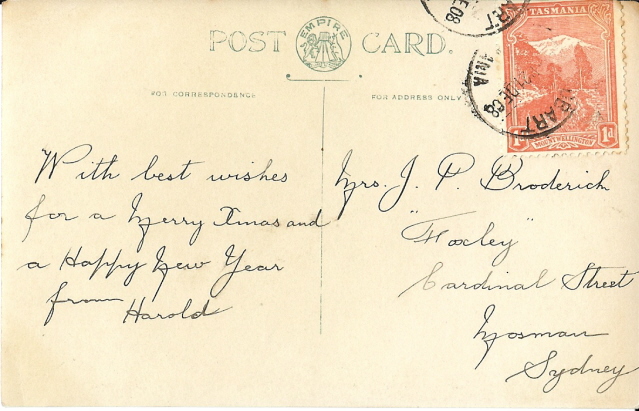 POST CARD.
EMPIRE
FOR CORRESPONDENCE
FOR ADDRESS ONLY
TASMANIA
1d 1d
MOUNT WELLINGTON
HOBART
21 DE 08
With best wishes
for a Merry Xmas and
a Happy New Year
from
Harold
Mrs. J. P. Broderick
"Foxley"
Cardinal Street
Mosman
Sydney